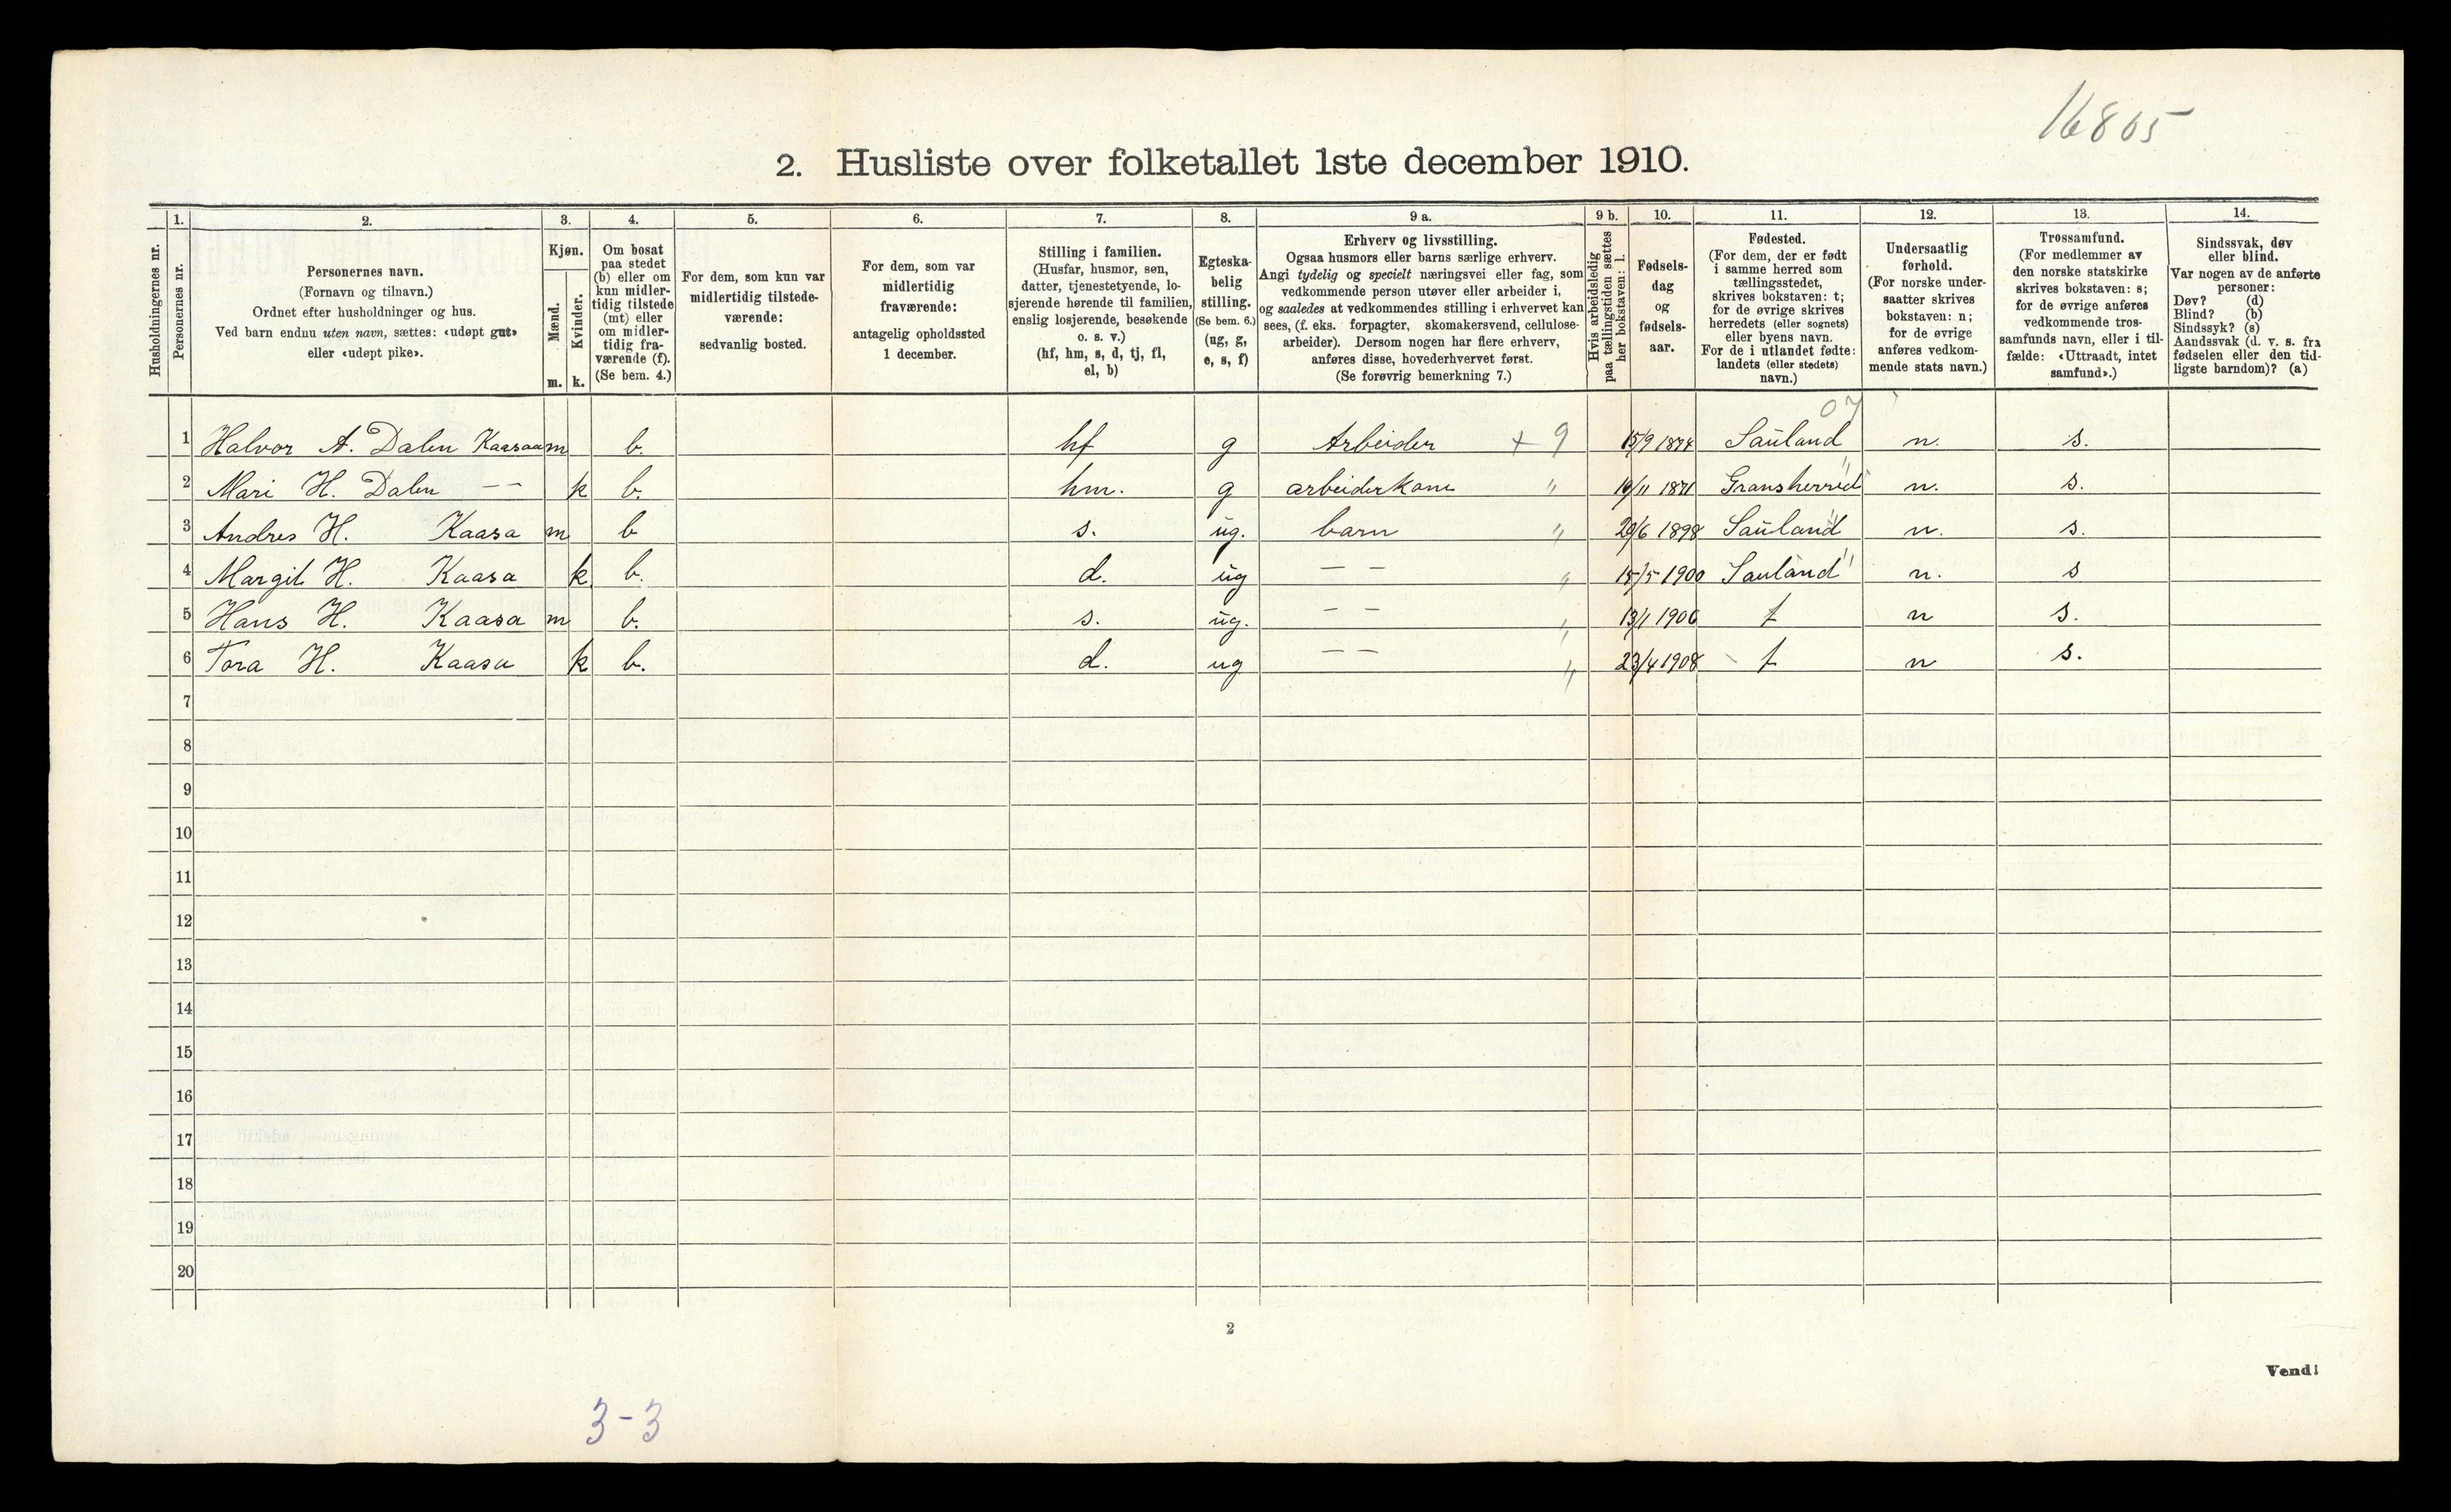 16805
2. Husliste over folketallet 1ste december 1910.
Husholdningernes nr.
1.
Personernes nr.
2.
Personernes navn.
(Fornavn og tilnavn.)
Ordnet efter husholdninger og hus.
Ved barn endnu uten navn, sættes: «udøpt gut»
eller «udøpt pike».
3.
Kjøn.
Mænd.
Kvinder.
m. k.
4.
Om bosat
paa stedet
(b) eller om
kun midler-
tidig tilstede
(mt) eller
om midler-
tidig fra-
værende (f).
(Se bem. 4.)
5.
For dem, som kun var
midlertidig tilstede-
værende:
sedvanlig bosted.
6.
For dem, som var
midlertidig
fraværende:
antagelig opholdssted
1 december.
7.
Stilling i familien.
(Husfar, husmor, søn,
datter, tjenestetyende, lo-
sjerende hørende til familien,
enslig losjerende, besøkende
o. s. v.)
(hf, hm, s, d, tj, fl,
el, b)
8.
Egteska-
belig
stilling.
(Se bem. 6.)
(ug, g,
e, s, f)
9 a.
Erhverv og livsstilling.
Ogsaa husmors eller barns særlige erhverv.
Angi tydelig og specielt næringsvei eller fag, som
vedkommende person utøver eller arbeider i,
og saaledes at vedkommendes stilling i erhvervet kan
sees, (f. eks. forpagter, skomakersvend, cellulose-
arbeider). Dersom nogen har flere erhverv,
anføres disse, hovederhvervet først.
(Se forøvrig bemerkning 7.)
9 b.
Hvis arbeidsledig
paa tællingstiden sættes
her bokstaven: l.
10.
Fødsels-
dag
og
fødsels-
aar.
11.
Fødested.
(For dem, der er født
i samme herred som
tællingsstedet,
skrives bokstaven: t;
for de øvrige skrives
herredets (eller sognets)
eller byens navn.
For de i utlandet fødte:
landets (eller stedets)
navn.)
12.
Undersaatlig
forhold.
(For norske under-
saatter skrives
bokstaven: n;
for de øvrige
anføres vedkom-
mende stats navn.)
13.
Trossamfund.
(For medlemmer av
den norske statskirke
skrives bokstaven: s;
for de øvrige anføres
vedkommende tros-
samfunds navn, eller i til-
fælde: «Uttraadt, intet
samfund».)
14.
Sindssvak, døv
eller blind.
Var nogen av de anførte
personer:
Døv? (d)
Blind? (b)
Sindssyk? (s)
Aandssvak (d. v. s. fra
fødselen eller den tid-
ligste barndom)? (a)
07
1 Halvor A. Dalen Kaasaa m b. hf g Arbeider + 9 15/9 1874 Sauland n. s.
2 Mari H. Dalen — — k b. hm. g arbeiderkone " /11 1871 Gransherred n. s.
3 Andres H. Kaasa m b s. ug. barn " 29/6 1898 Sauland n. s.
4 Margit H. Kaasa k b. d. ug — — " 15/5 1900 Sauland n. s
5 Hans H. Kaasa m b. s. ug. — — " 13/1 1906 t n s.
6 Tora H. Kaasa k b. d. ug — — " 23/4 1908 t n s.
7
8
9
10
11
12
13
14
15
16
17
18
19
20
2
Vend!
3-3